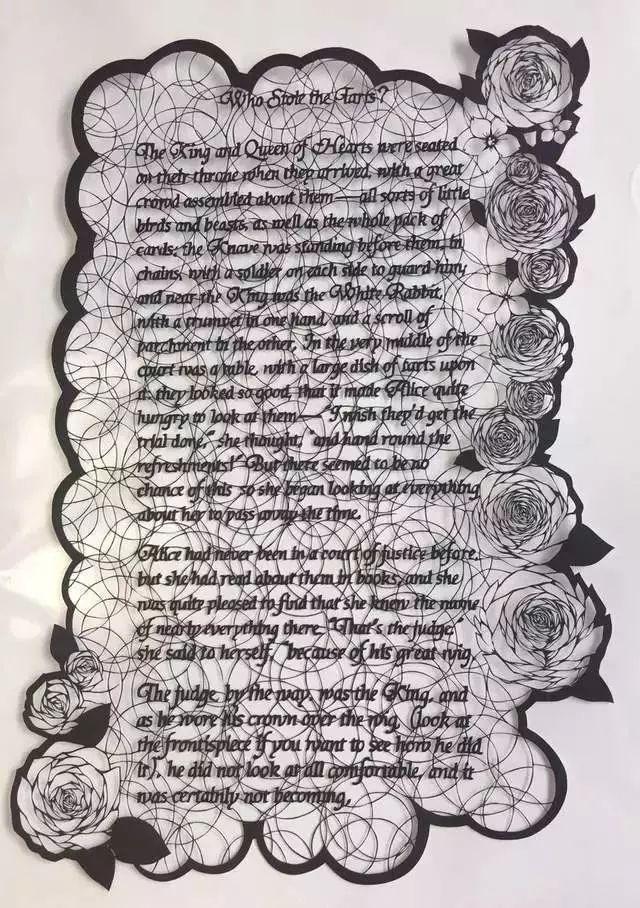 Who Stole the Tarts?
The King and Queen of Hearts were seated
on their throne when they arrived, with a great
crowd assembled about them—all sorts of little
birds and beasts, as well as the whole pack of
cards: the Knave was standing before them, in
chains, with a soldier on each side to guard him;
and near the King was the White Rabbit,
with a trumpet in one hand, and a scroll of
parchment in the other. In the very middle of the
court was a table, with a large dish of tarts upon
it: they looked so good, that it made Alice quite
hungry to look at them—"I wish they'd get the
trial done," she thought, "and hand round the
refreshments!" But there seemed to be no
chance of this, so she began looking at everything
about her to pass away the time.
Alice had never been in a court of justice before,
but she had read about them in books, and she
was quite pleased to find that she knew the name
of nearly everything there. "That's the judge,"
she said to herself, "because of his great wig.
The judge, by the way, was the King, and
as he wore his crown over the wig, (look at
the frontispiece if you want to see how he did
it), he did not look at all comfortable, and it
was certainly not becoming,